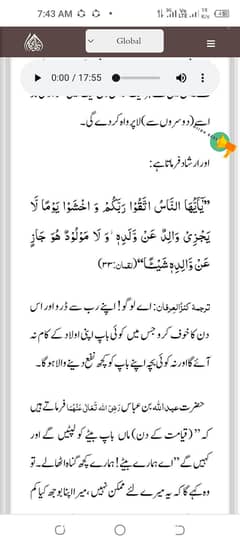 7:43 AM
Global
0:00 / 17:55
اسے (دوسروں سے) لاپرواہ کردے گی۔
اور ارشاد فرماتا ہے:
’’یٰۤاَیُّهَا النَّاسُ اتَّقُوْا رَبَّكُمْ وَ اخْشَوْا یَوْمًا لَّا
یَجْزِیْ وَالِدٌ عَنْ وَّلَدِهٖ٘-وَ لَا مَوْلُوْدٌ هُوَ جَازٍ
عَنْ وَّالِدِهٖ شَیْــٴًـا‘‘(لقمان:۳۳)
ترجمۂ کنزُالعِرفان: اے لوگو! اپنے رب سے ڈرو اور اس
دن کا خوف کرو جس میں کوئی باپ اپنی اولاد کے کام نہ
آئے گا اور نہ کوئی بچہ اپنے باپ کو کچھ نفع دینے والا ہوگا۔
حضرت عبداللہ بن عباس رَضِیَ اللہ تَعَالٰی عَنْہُمَا فرماتے ہیں
کہ ’’(قیامت کے دن) ماں باپ بیٹے کو لپٹیں گے اور
کہیں گے ’’اے ہمارے بیٹے! ہمارے کچھ گناہ اٹھالے۔ تو
وہ کہے گا کہ یہ میرے لئے ممکن نہیں، میرا اپنا بوجھ کیا کم